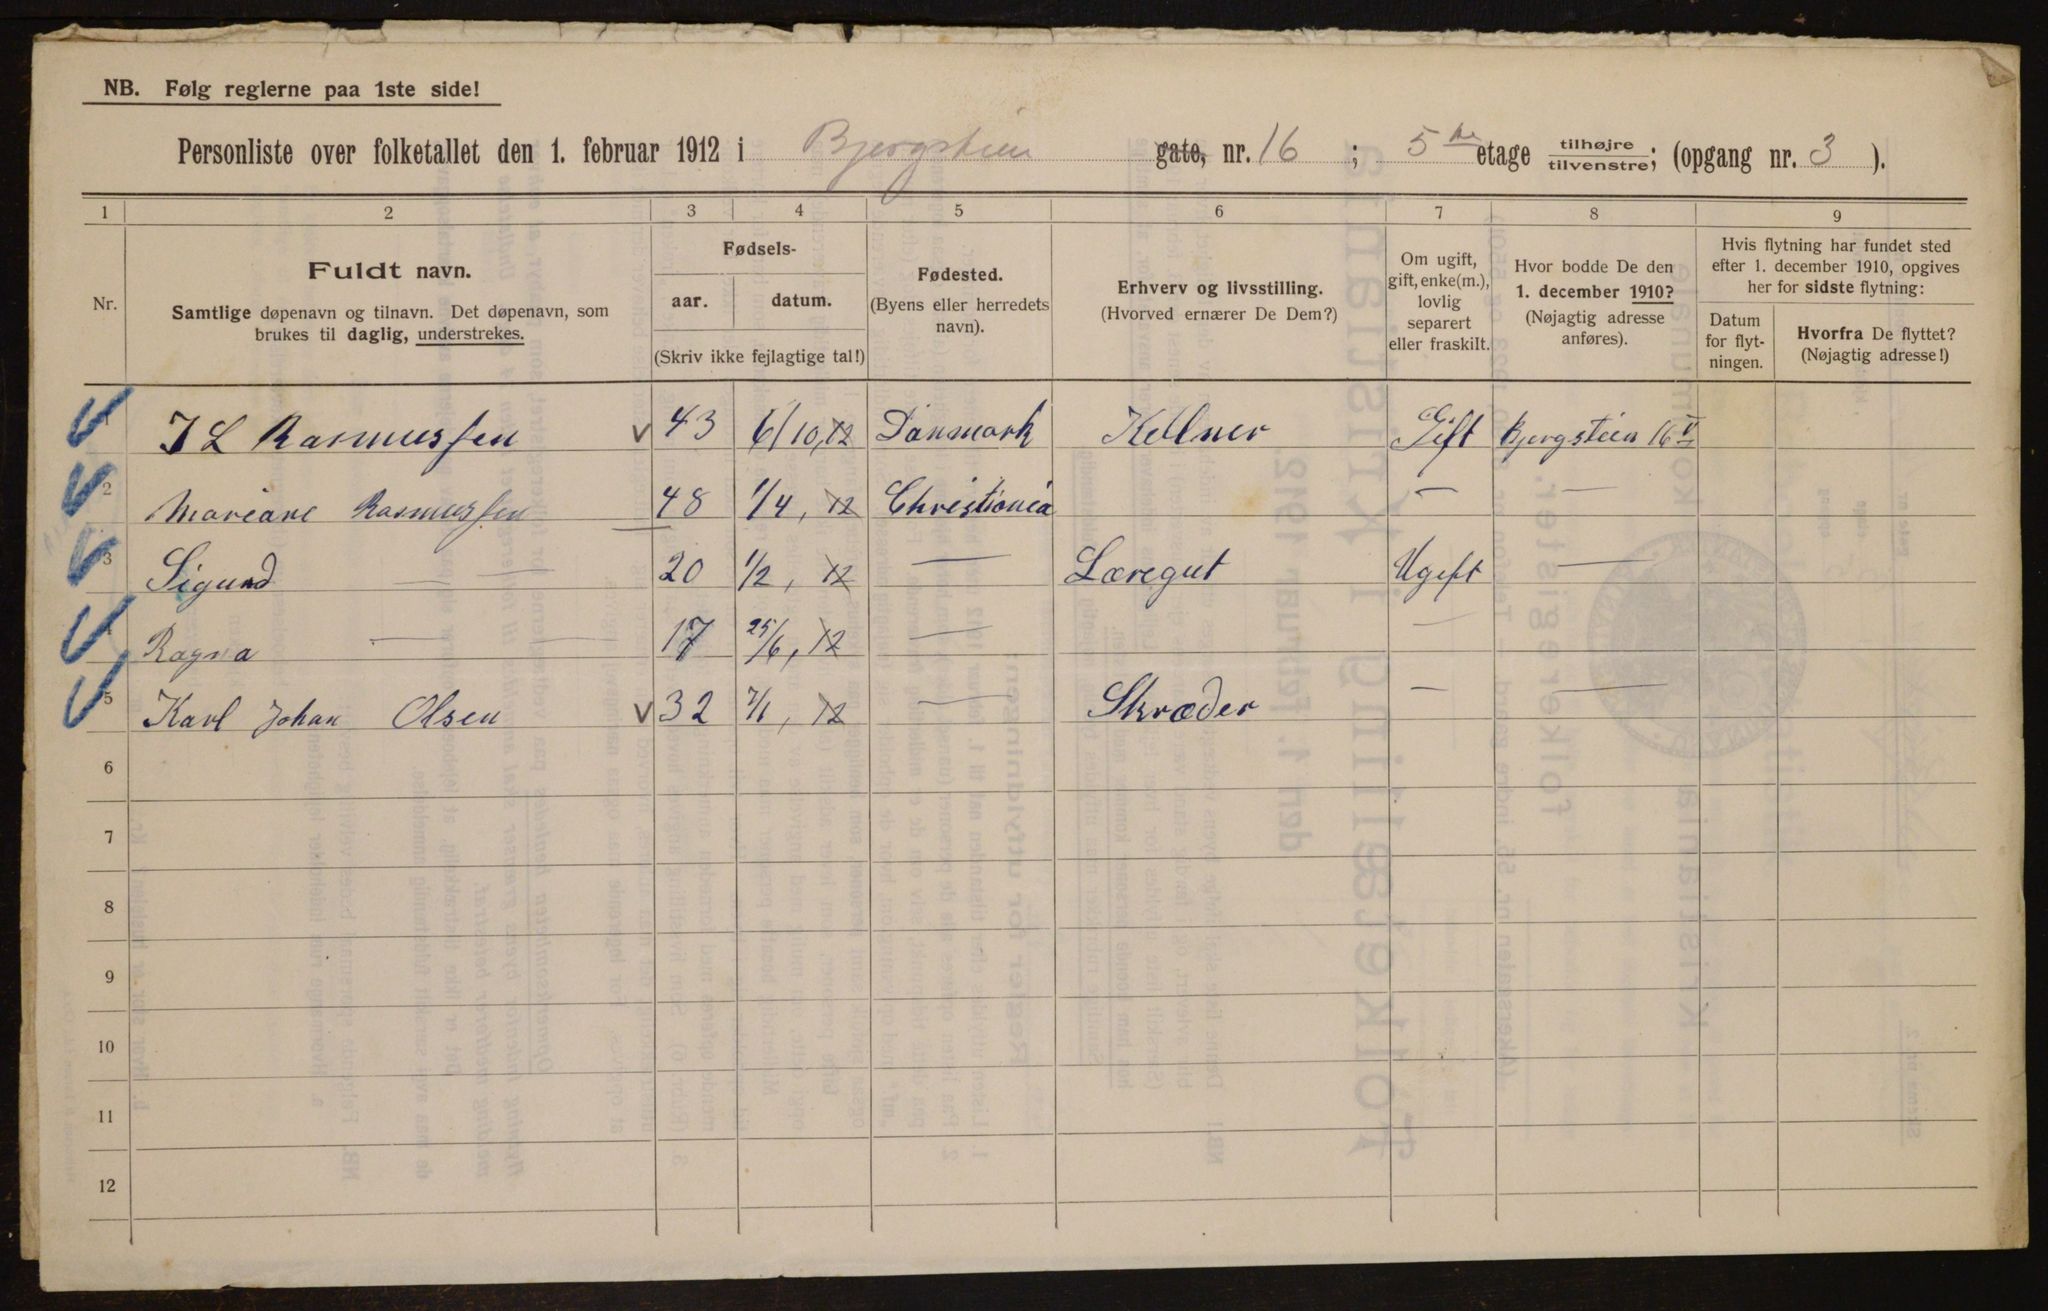 NB. Følg reglerne paa 1ste side!
Personliste over folketallet den 1. februar 1912 i Bjergstien gate, nr. 16 ; 5te etage tilhøjre/tilvenstre; (opgang nr. 3 ).
1 2 3 4 5 6 7 8 9
Nr.
Fuldt navn.
Samtlige døpenavn og tilnavn. Det døpenavn, som
brukes til daglig, understrekes.
Fødsels-
aar. datum.
(Skriv ikke fejlagtige tal!)
Fødested.
(Byens eller herredets
navn).
Erhverv og livsstilling.
(Hvorved ernærer De Dem?)
Om ugift,
gift, enke(m.),
lovlig
separert
eller fraskilt.
Hvor bodde De den
1. december 1910?
(Nøjagtig adresse
anføres).
Hvis flytning har fundet sted
efter 1. december 1910, opgives
her for sidste flytning:
Datum
for flyt-
ningen.
Hvorfra De flyttet?
(Nøjagtig adresse!)
1 J L Rasmussen v 43 6/10, 12 Danmark Kellner Gift Bjergstien 16 V
2 Mariane Rasmussen 48 1/4, 12 Christiania — —
3 Sigurd — — 20 1/2, 12 — Læregut Ugift —
4 Ragna — — 17 25/6, 12 — —
5 Karl Johan Olsen v 32 7/1, 12 — Skræder — —
6
7
8
9
10
11
12